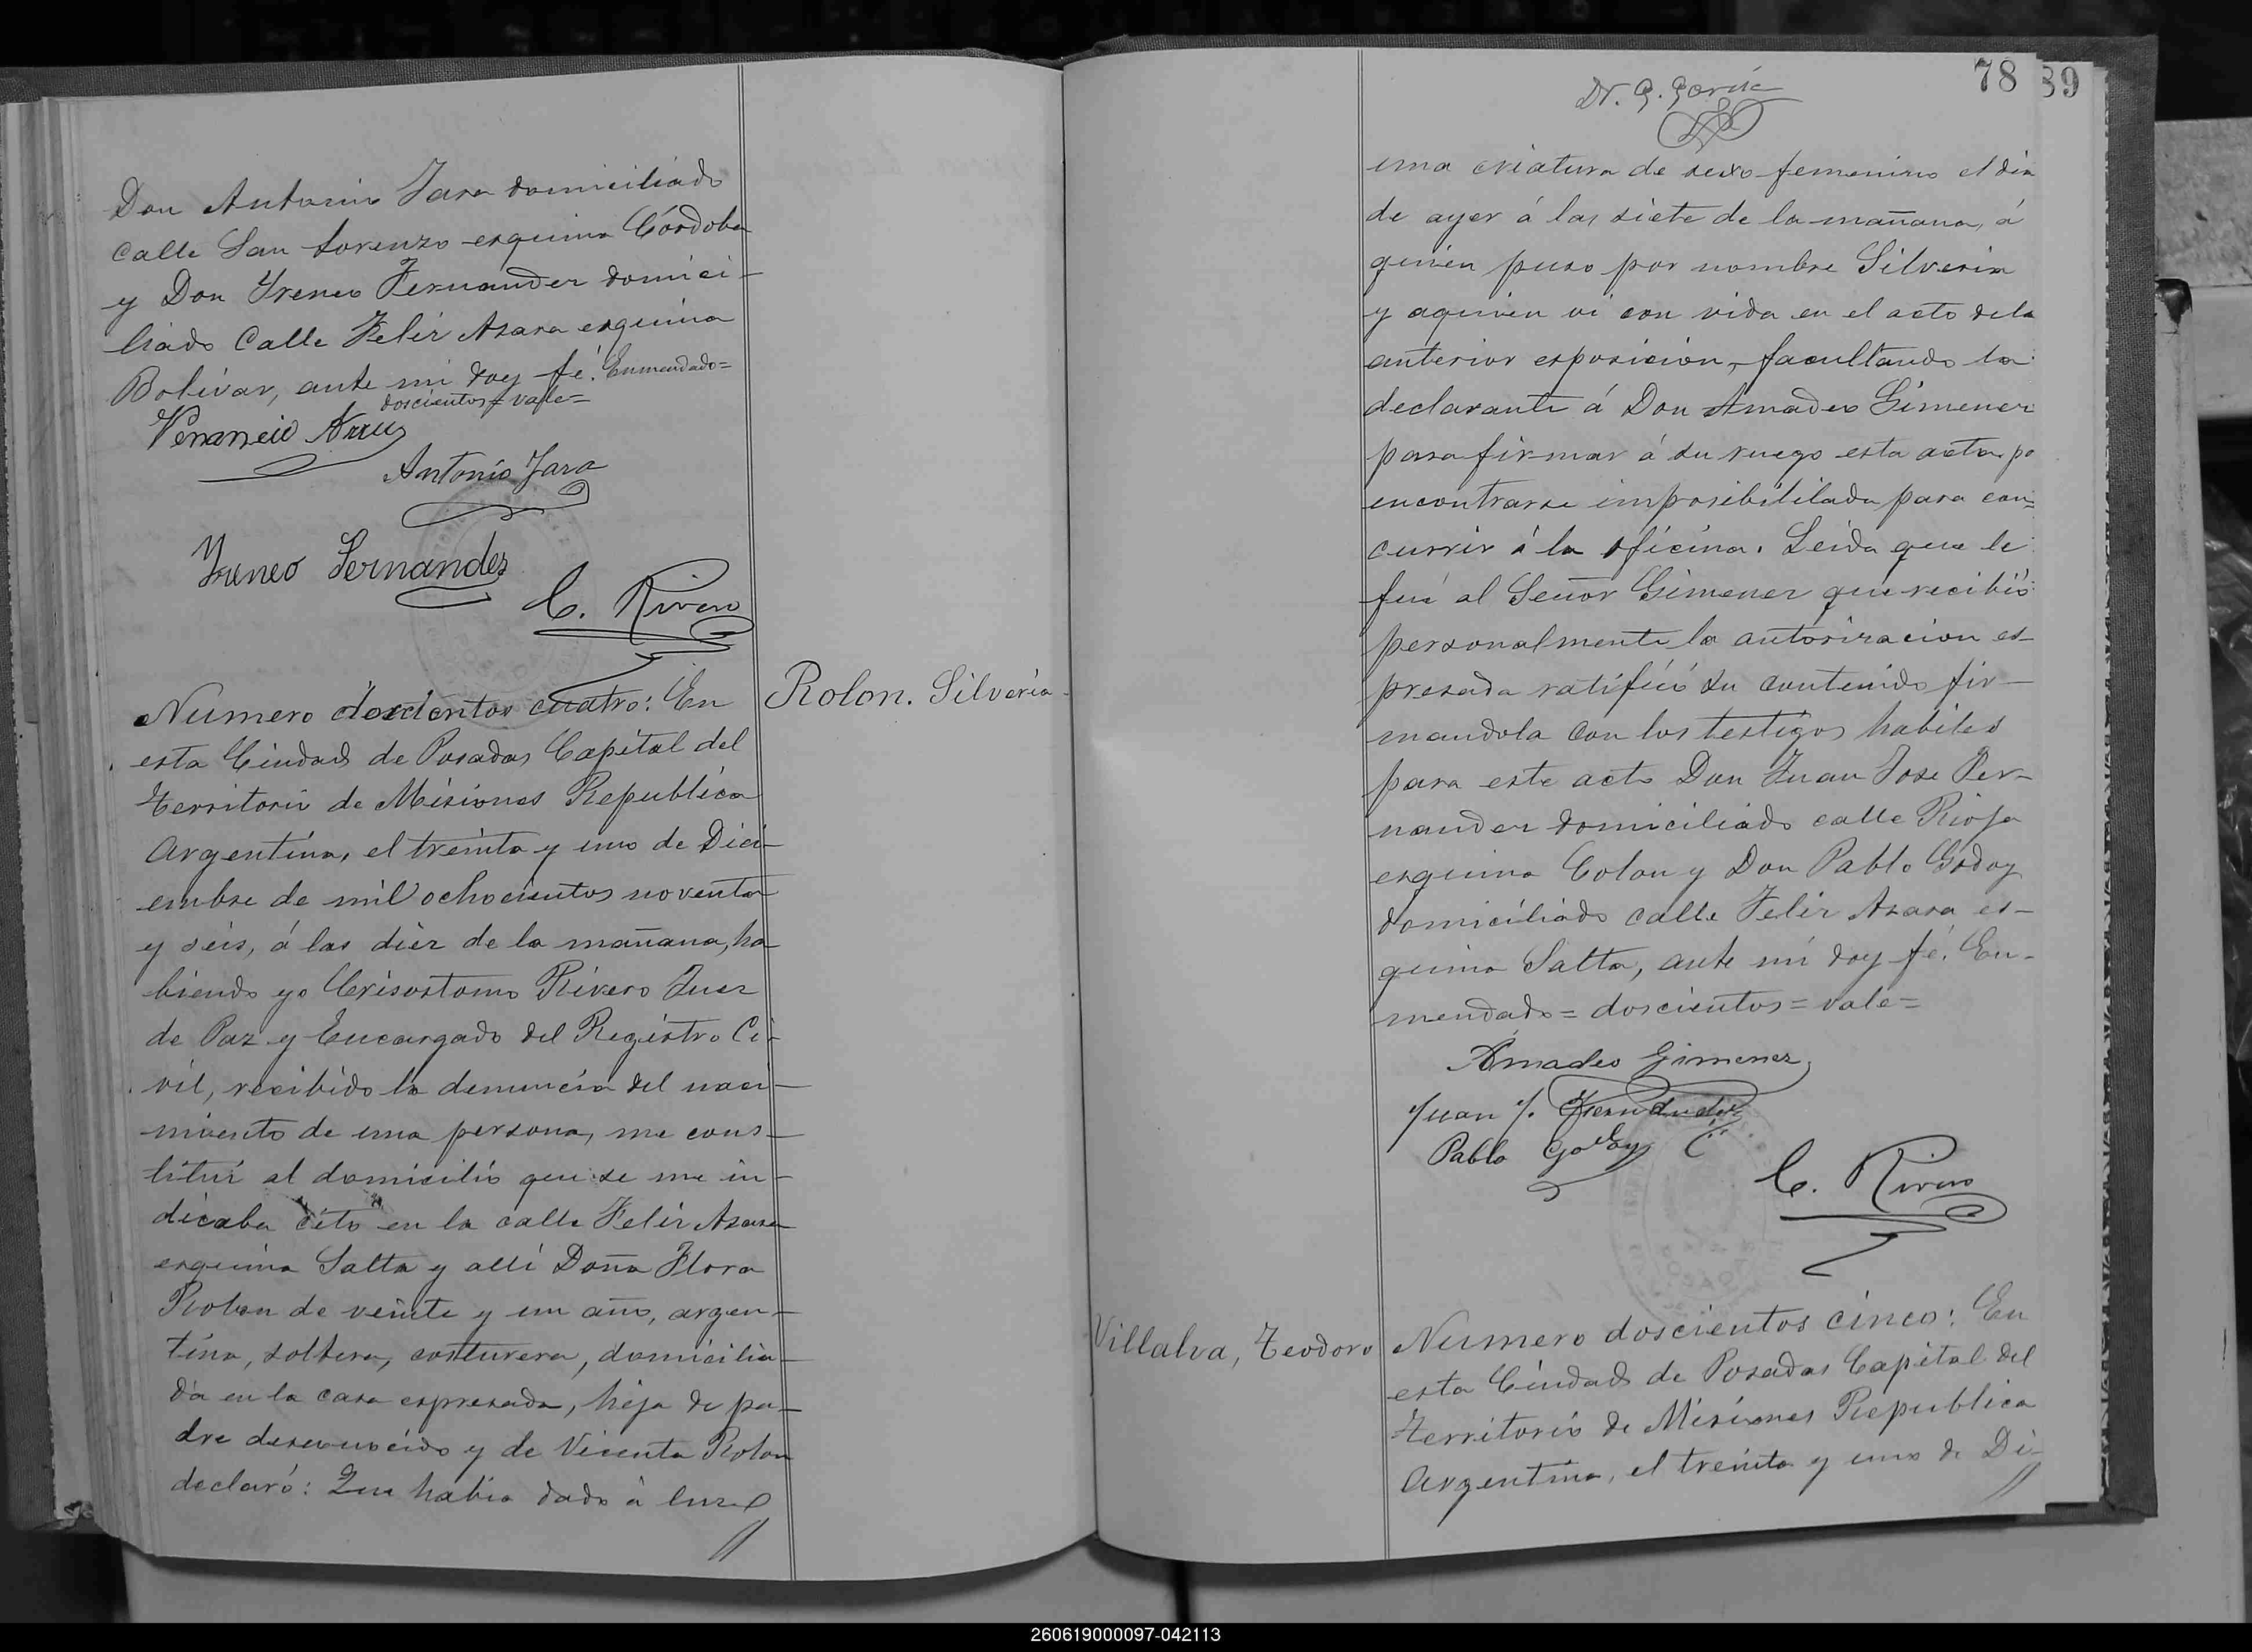 Don Antonio Jara domiciliado
calle San Lorenzo esquina Córdoba
y Don Yreneo Fernander domici-
liado Calle Felir Asara esquina
Bolivar, ante mi doy fé. Enmendado=
doscientos=vale=
Venancio
Antonio Jara
Yreneo Fernandez
C. Rivero
Numero doscientos cuatro: En
esta Ciudad de Posadas Capital del
Territorio de Misiones Republica
Argentina, el treinta y uno de Dici-
embre de mil ochocientos noventa
y seis, á las diez de la mañana, ha-
biendo yo Crisostomo Rivero Juez
de Paz y Encargado del Registro Ci-
vil, recibido la denuncia del naci-
miento de una persona, me cons-
tituí al domicilio que se me in-
dicaba cito en la calle Felir Asara
esquina Salta y allí Doña Flora
Rolon de veinte y un año, argen-
tina, soltera, costurera, domicilia-
da en la casa espresada, hija de pa-
dre desconocido y de Vicenta Rolon
declaró: Que habia dado á luz
Rolon. Silveria
78
39
Dr. G. García
una criatura de sexo femenino el dia
de ayer á las siete de la mañana, á
quien puso por nombre Silveria
y aquien vi con vida en el acto dela
anterior esposicion, facultando la
declarante á Don Amadeo Gimener
para firmar á su ruego esta acta po
encontrarse imposibilitada para con=
currir á la oficina. Leida que le
fué al Señor Gimener que recibió
personalmente la autorizacion es-
presada ratificó su contenido fir-
mandola con los testigos habiles
para este acto Don Juan Jose Fer-
nander domiciliado calle Rioja
esquina Colon y Don Pablo Godoy
domiciliado calle Felir Asara es-
quina Salta, ante mí doy fé. En-
mendado=doscientos=vale=
Amadeo Gimenez
Juan J. Fernandez
Pablo Godoy
C. Rivero
Villalva, Teodoro
Numero doscientos cinco: En
esta Ciudad de Posadas Capital del
Territorio de Misiones Republica
Argentina, el treinta y uno de Di-
260619000097-042113